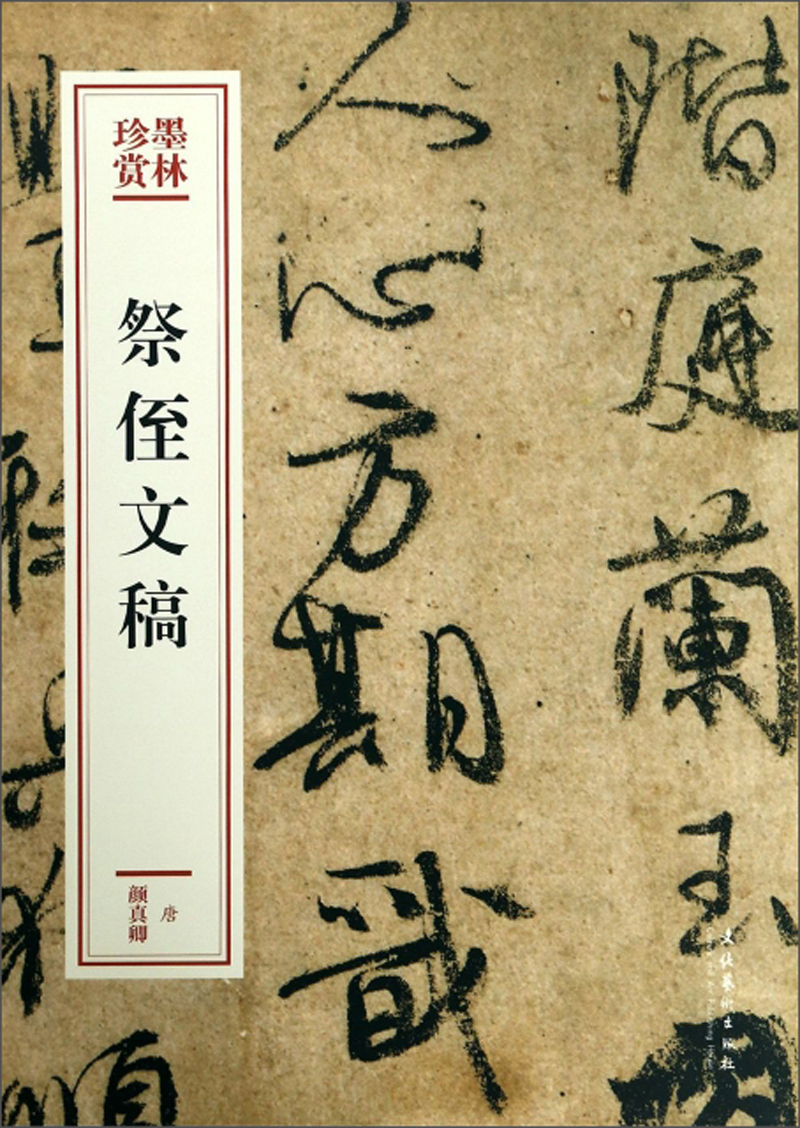 墨林
珍赏
祭侄文稿
唐
颜真卿
階庭蘭玉
人心方期戩
文化藝術出版社